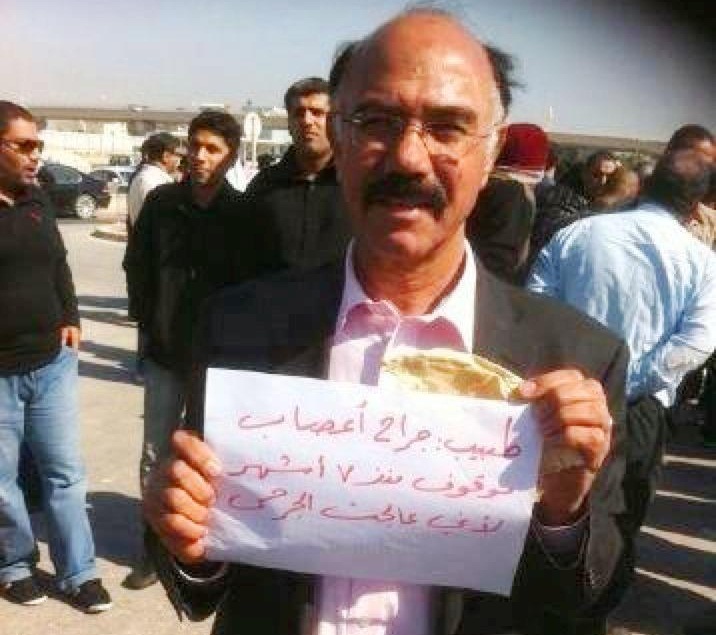 طبيب: جراح أعصاب
موقوف منذ ٧ أشهر
لأني عالجت الجرحى